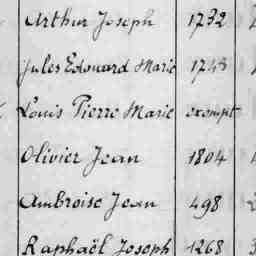 Arthur Joseph 1732
Jules Edouard Marie 1743
Louis Pierre Marie exempt
Olivier Jean 1804
Ambroise Jean 498
Raphaël Joseph 1268